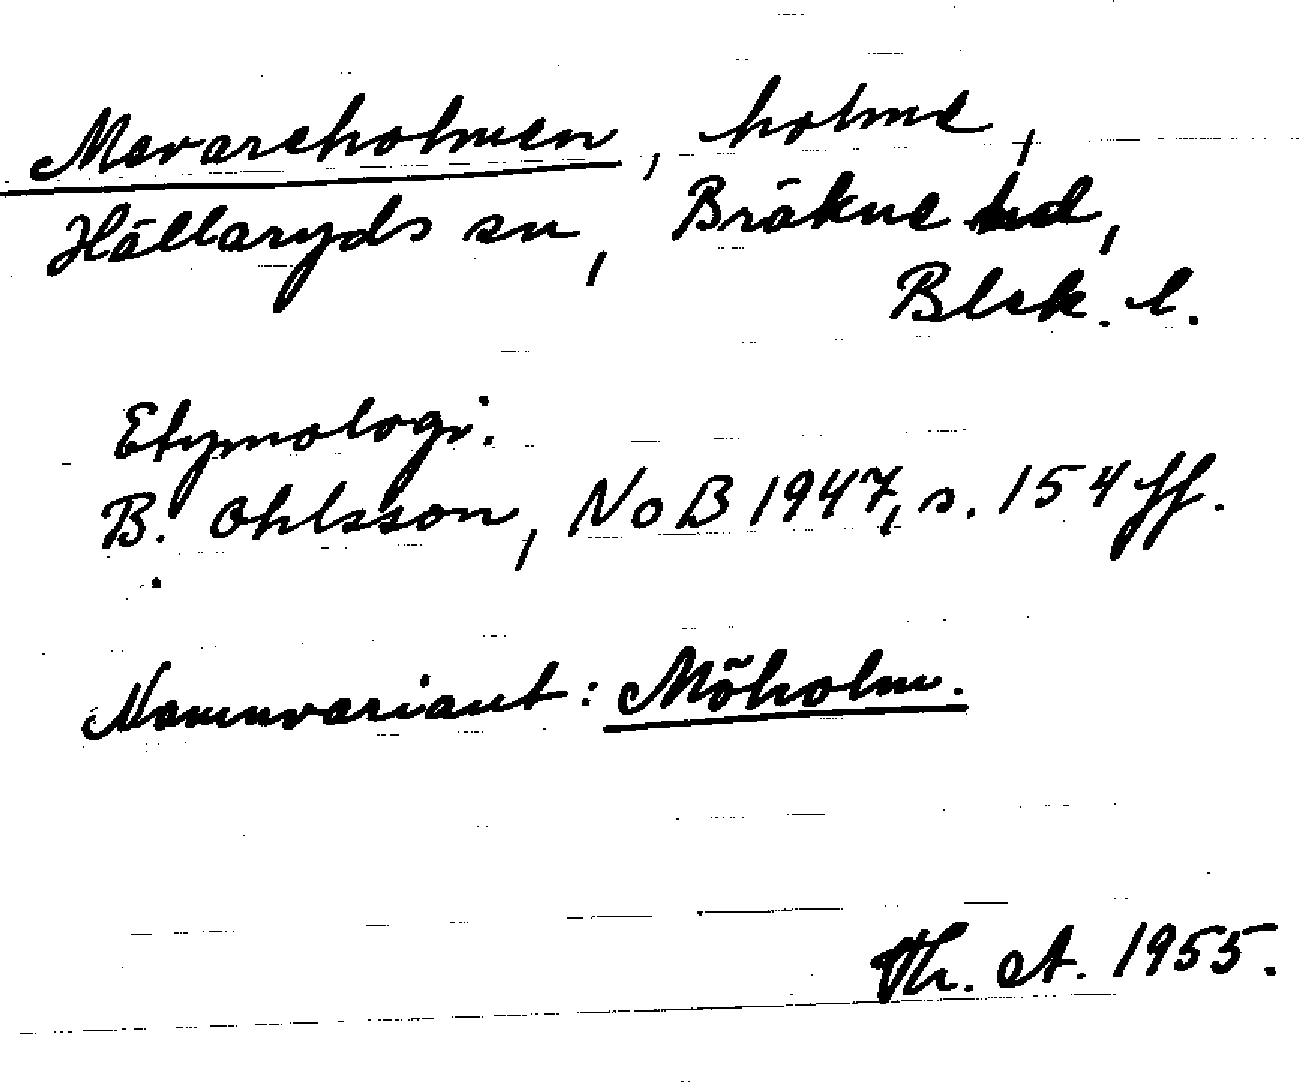 Mevareholmen, holme,
Hällaryds sn, Bräkne hd,
Blek. l.
Etymologi:
B. Ohlsson, NoB 1947, s. 154 ff.
Namnvariant: Möholm.
Th. A. 1955.